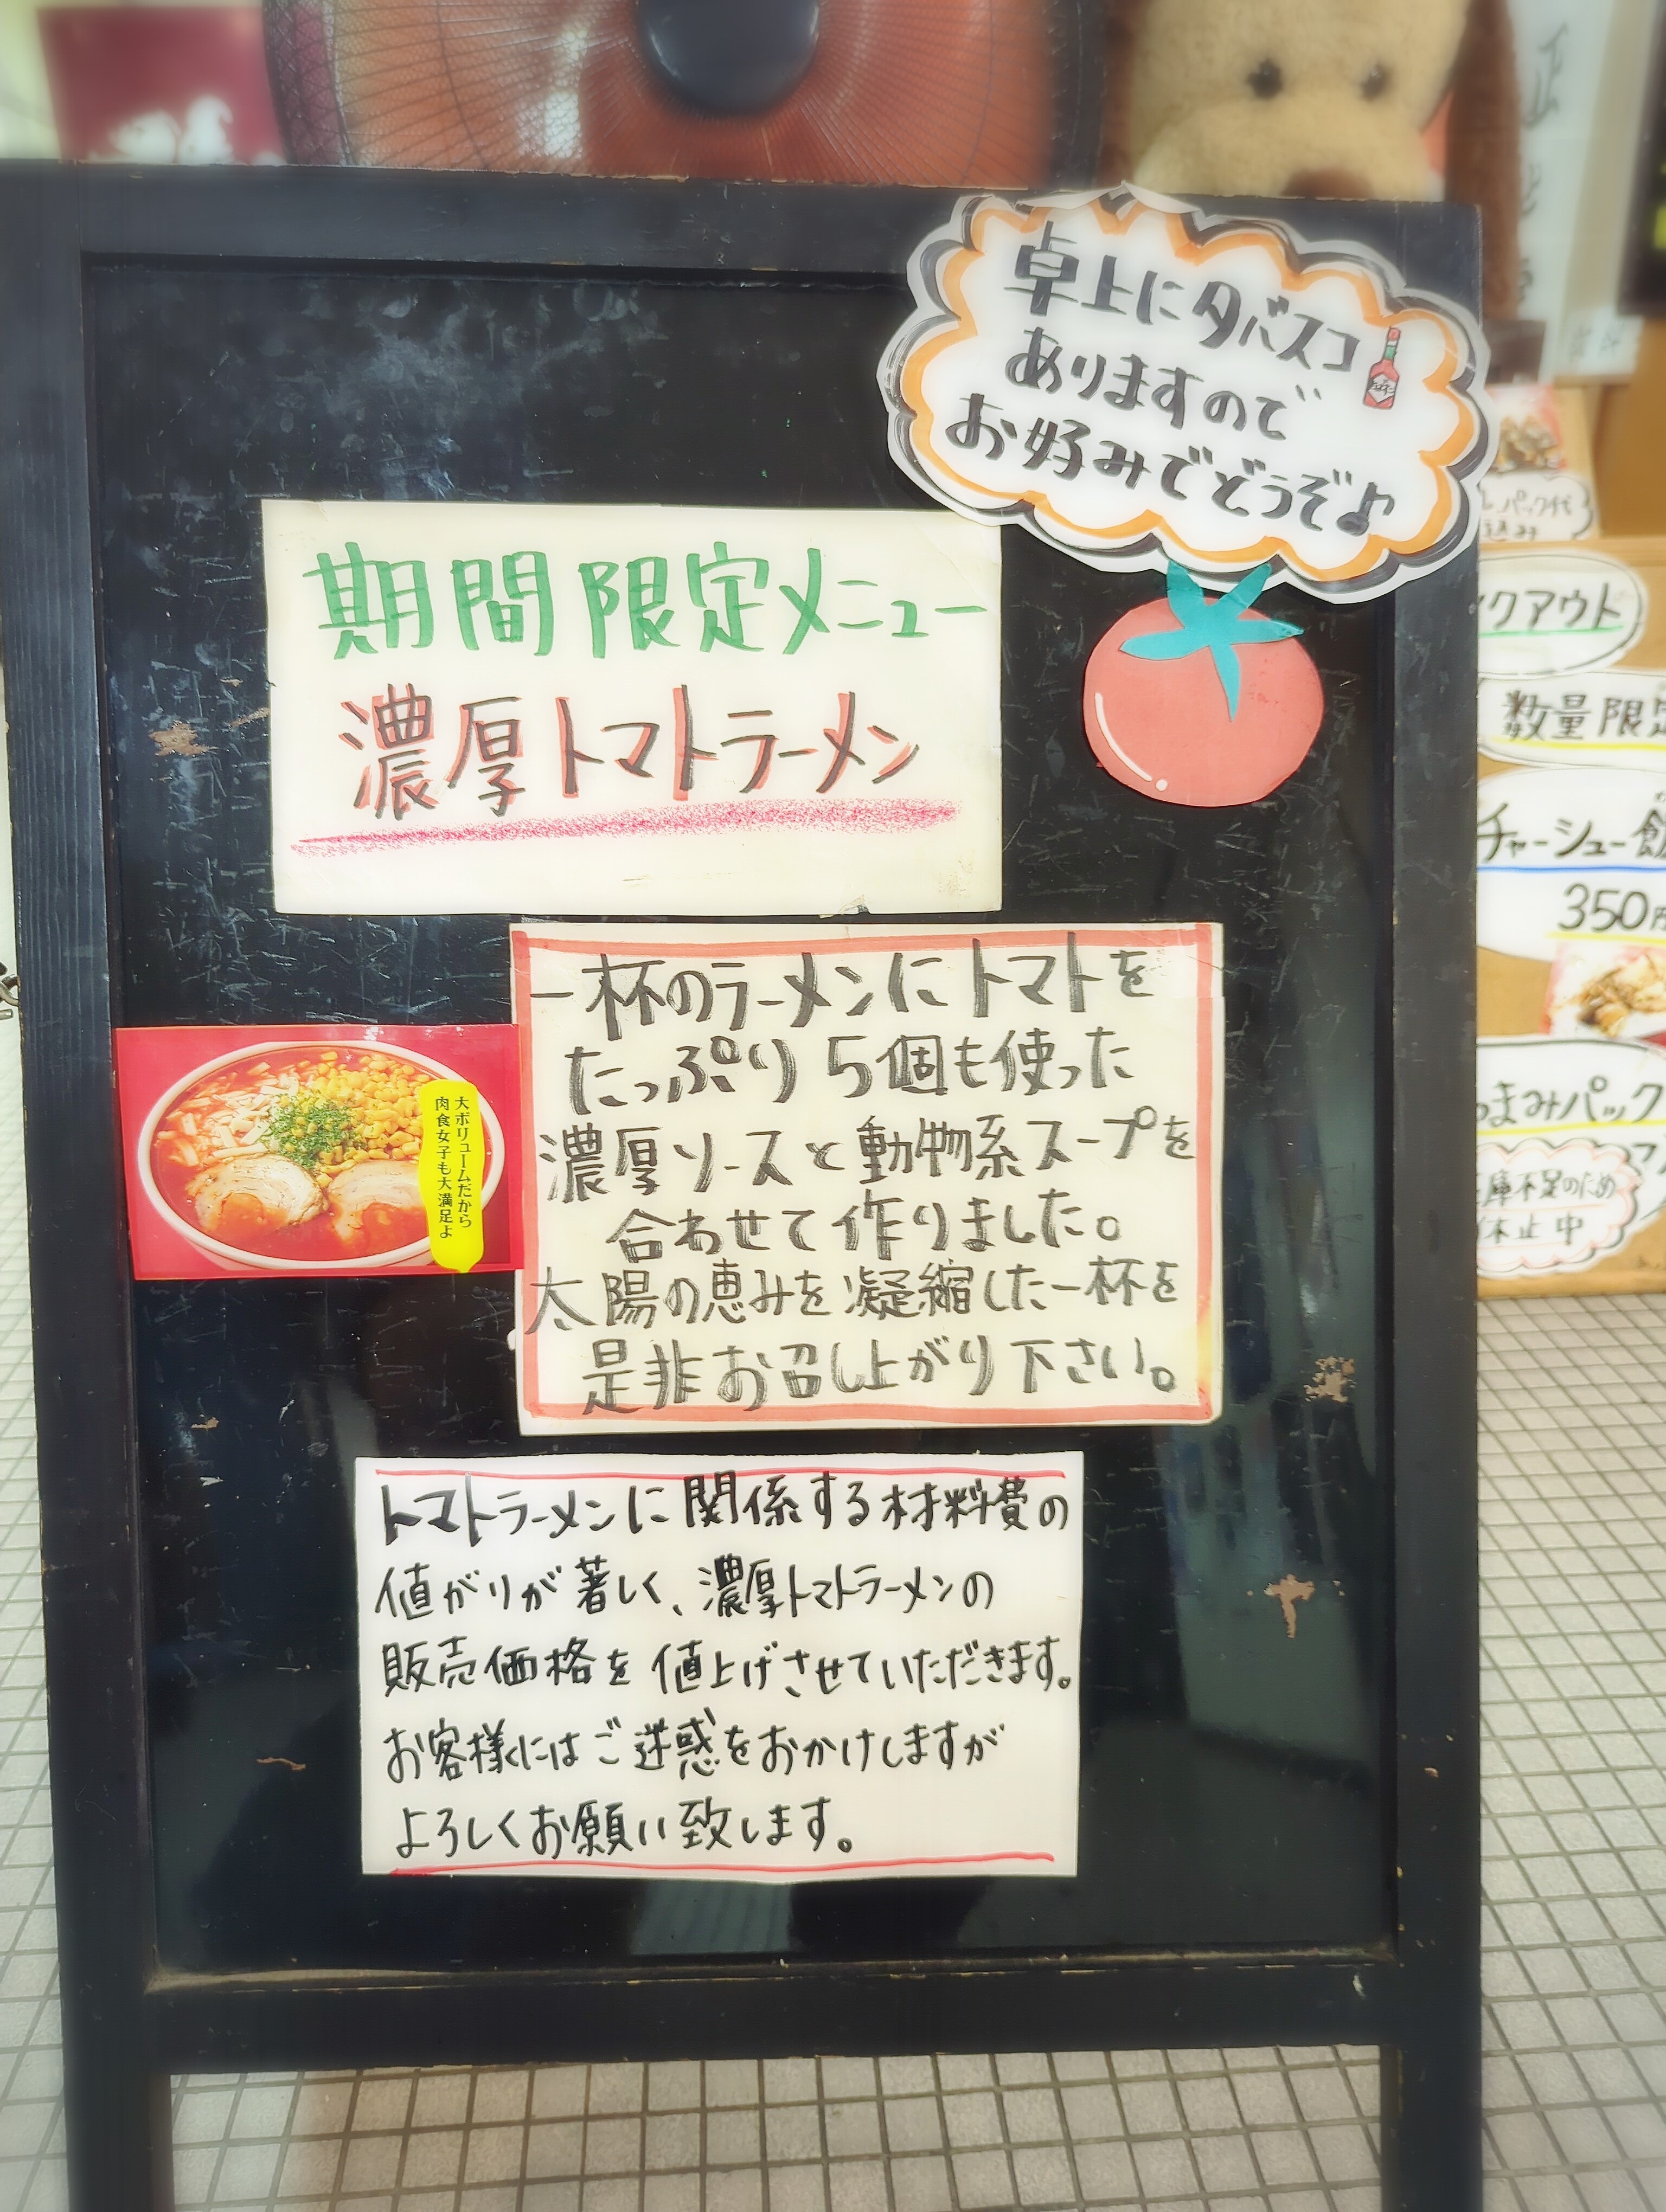 卓上にタバスコ
ありますので
お好みでどうぞ♪
期間限定メニュー
濃厚トマトラーメン
一杯のラーメンにトマトを
たっぷり5個も使った
濃厚ソースと動物系スープを
合わせて作りました。
太陽の恵みを凝縮した一杯を
是非お召し上がり下さい。
大ボリュームだから
肉食女子も大満足よ
トマトラーメンに関係する材料費の
値がりが著しく、濃厚トマトラーメンの
販売価格を値上げさせていただきます。
お客様にはご迷惑をおかけしますが
よろしくお願い致します。
パック代
込み
クアウト
数量限定
チャーシュー飯
350円
まみパック
庫不足のため
休止中